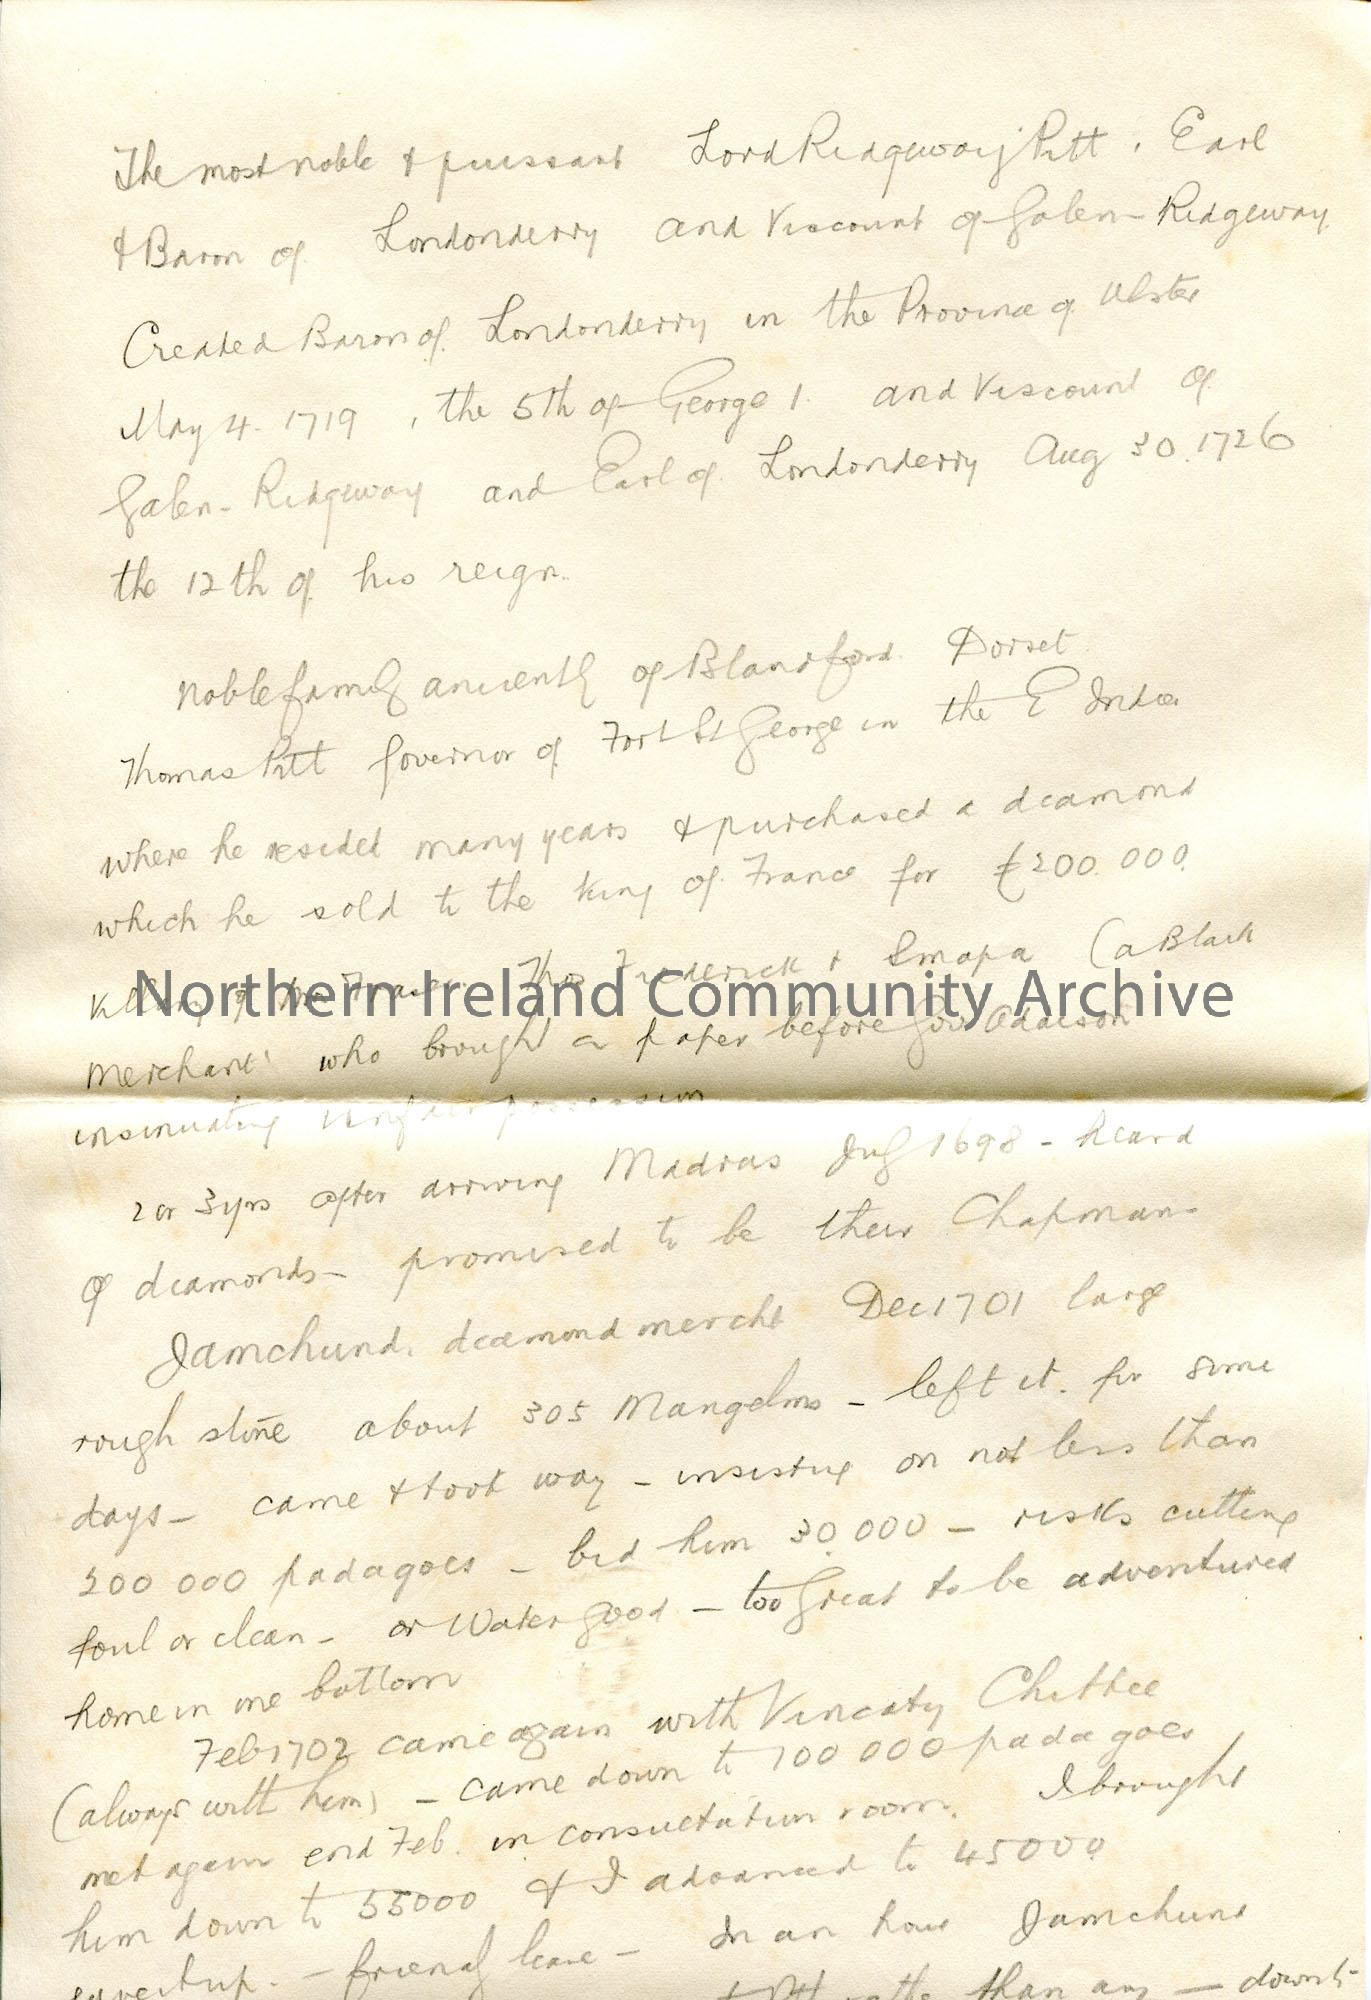 The most noble & puissant Lord Ridgeway Pitt, Earl
& Baron of Londonderry and Viscount of Galen-Ridgeway
Created Baron of Londonderry in the Province of Ulster
May 4. 1719, the 5th of George 1. and Viscount of
Galen-Ridgeway and Earl of Londonderry Aug 30. 1726
the 12th of his reign.
Noble family anciently of Blandford. Dorset
Thomas Pitt Governor of Fort St George in the E Indies
where he resided many years & purchased a diamond
which he sold to the King of France for £200.000.
Thos Frederick & Smapa (a Black
Northern Ireland Community Archive
Merchant who brought a paper before Gov Adaison
insinuating unfair possession
2 or 3 yrs after arriving Madras July 1698 - heard
of diamonds - promised to be their Chapman -
Jamchund. diamond mercht Dec 1701 large
rough stone about 305 Mangelms - left it. for some
days - came & took way - insisting on not less than
200 000 padagoes - bid him 30.000 - risks cutting
foul or clean - or Water good - too great to be adventured
home in one bottom
Feb 1702 came again with Vincaty Chittee
(always with him) - came down to 100 000 padagoes
met again end Feb. in consultation room. I brought
him down to 55000 & I advanced to 45000
gave it up. - friendly leave - In an hour Jamchund
than any - down to